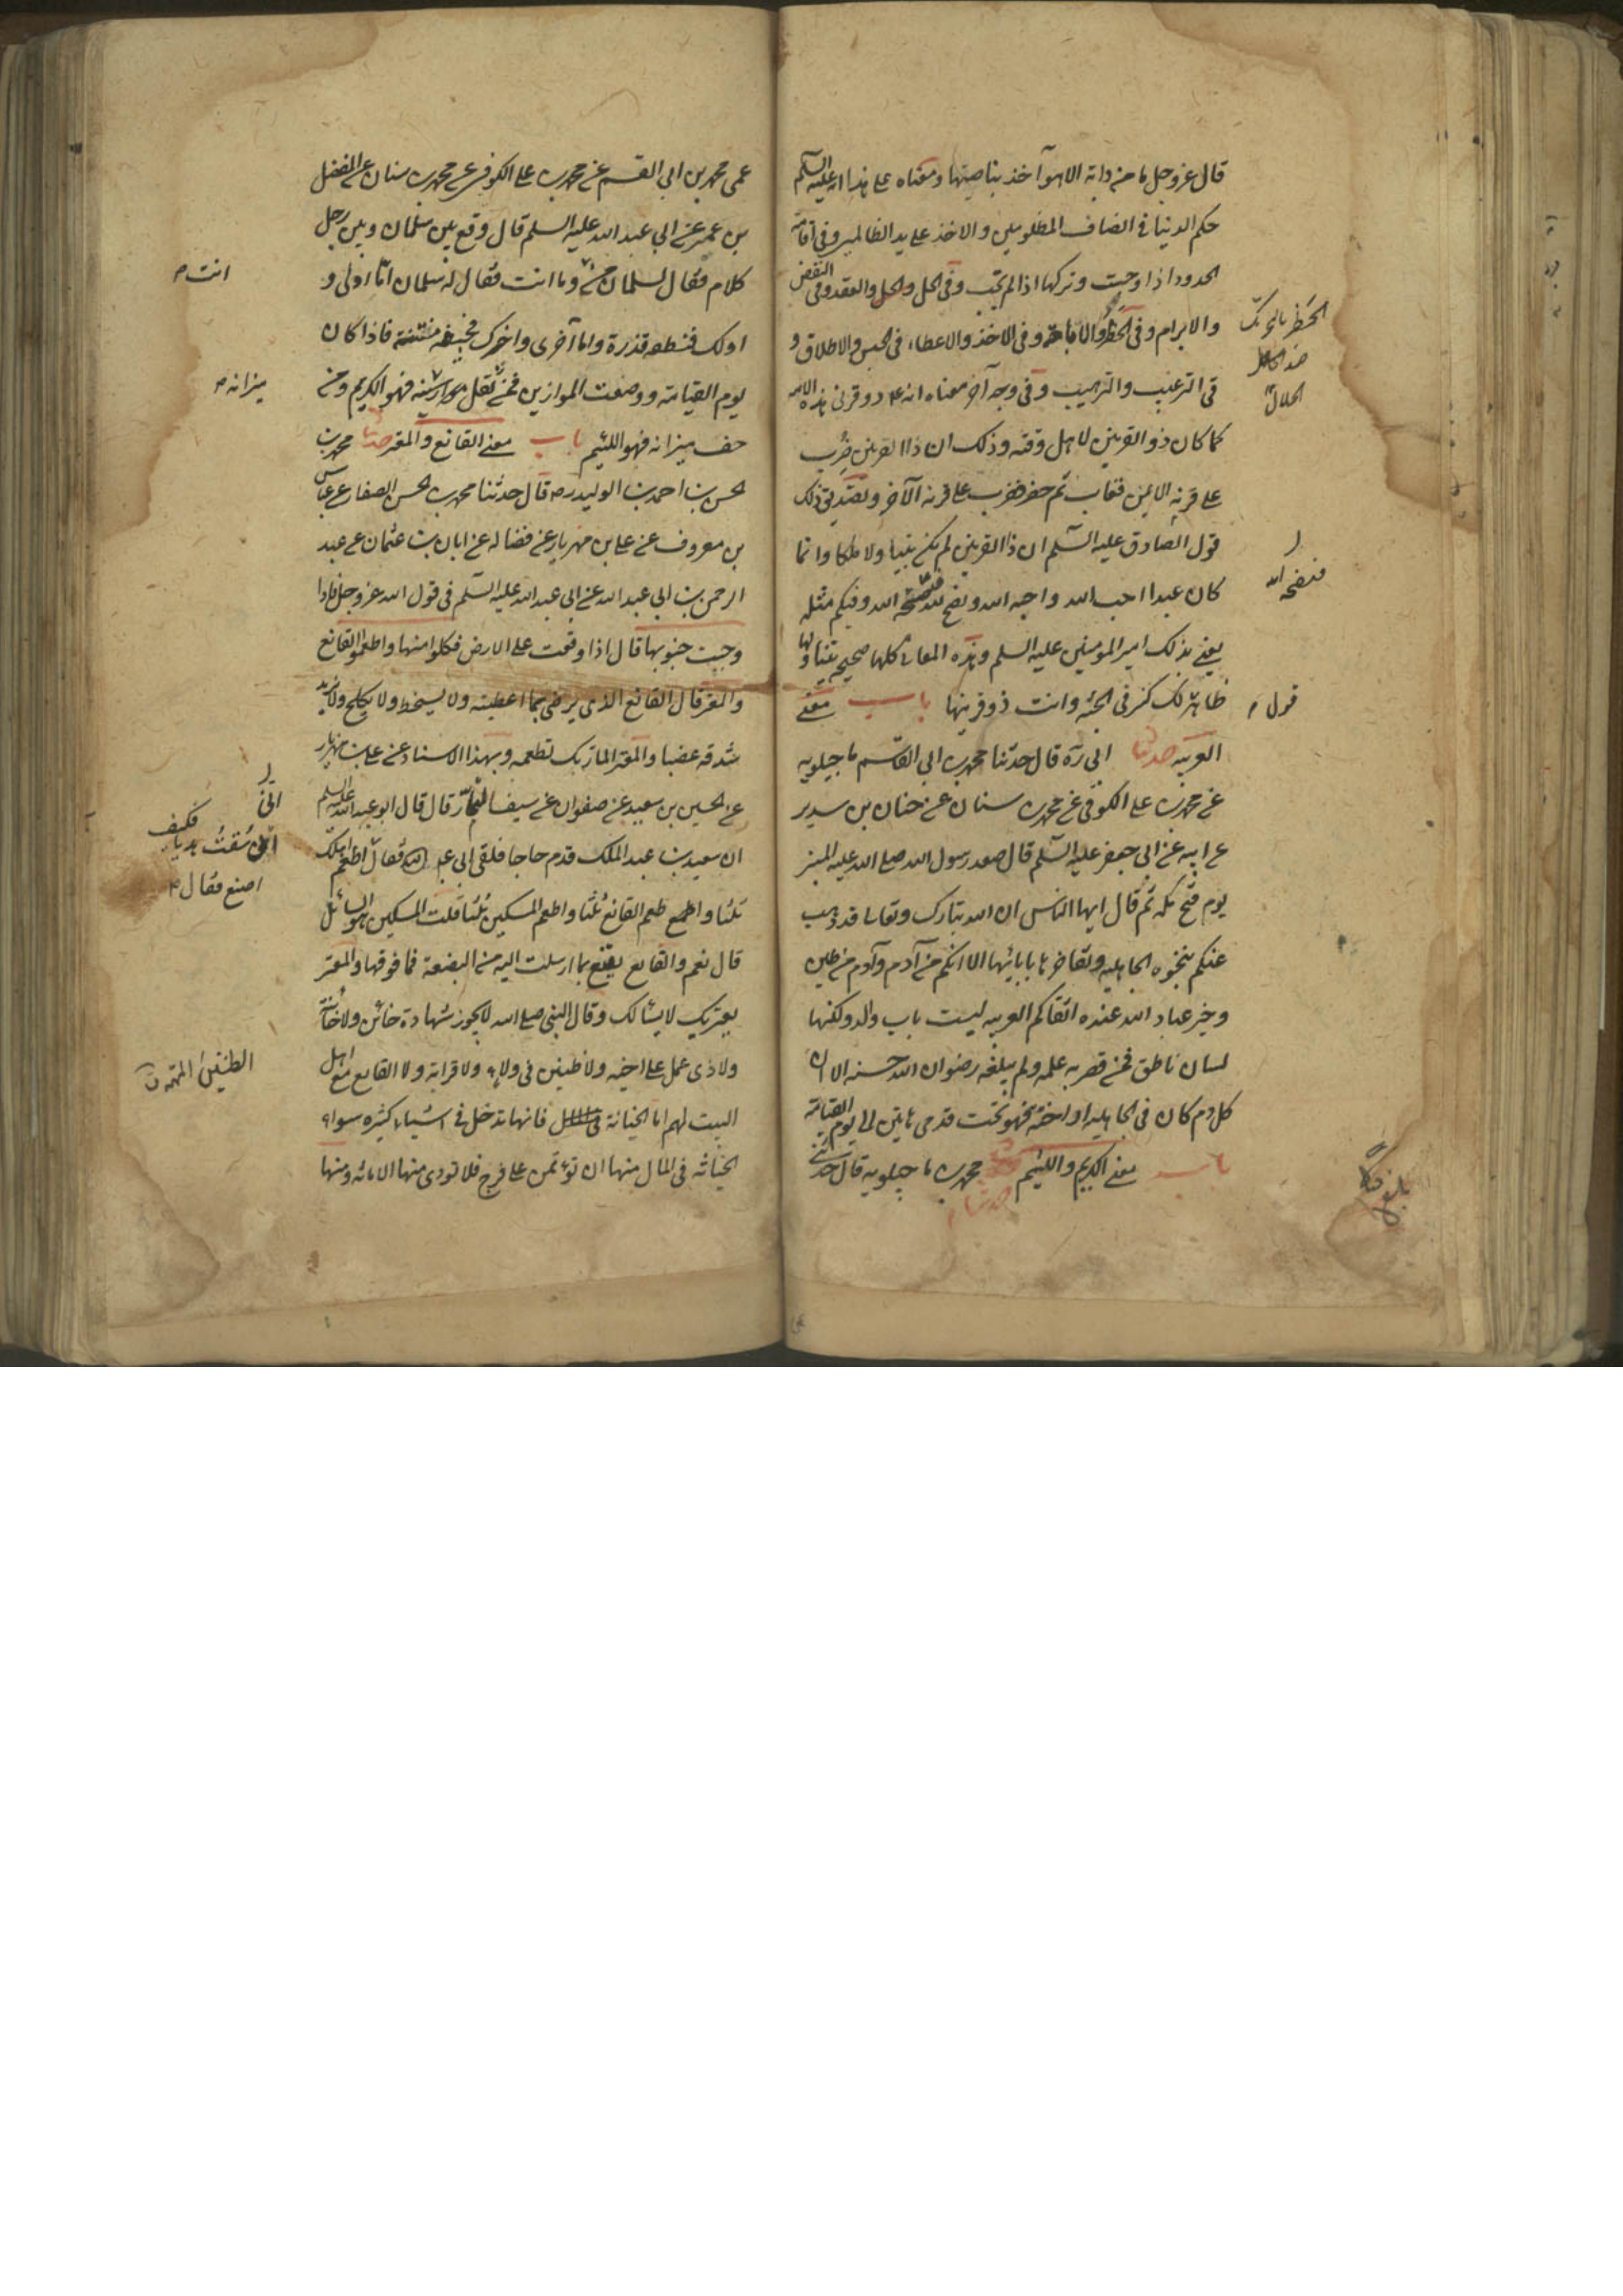 قال عز وجل ما من دابة الا هو آخذ بناصيتها ومعناه على هذا انه عليه السلم
حكم الدنيا فى انصاف المظلومين والاخذ على يد الظالمين وفى اقامة
الحدود اذا وجبت وتركها اذا لم تجب وفى الحل والعقد وفى النقض
والابرام وفى الحظر والاباحة وفى الاخذ والاعطاء فى الحبس والاطلاق و
فى الترغيب والترهيب وفى وجه آخر معناه انه ع ذو قرنى هذه الامة
كما كان ذو القرنين لاهل وقته وذلك ان ذا القرنين ضُرِب
على قرنه الايمن فغاب ثم حضر فضرب على قرنه الآخر وتصديق ذلك
قول الصادق عليه السلم ان ذا القرنين لم يكن نبيا ولا ملكا وانما
كان عبدا احب الله واحبه الله ونصح لله فنصحه الله وفيكم مثله
يعنى بذلك امير المؤمنين عليه السلم وهذه المعانى كلها صحيح يتناولها
ظاهر لك كنز فى الجنة وانت ذو قرنيها باب معنى
العربيه حدثنا ابى ره قال حدثنا محمد بن ابى القاسم ماجيلويه
عن محمد بن على الكوفى عن محمد بن سنان عن حنان بن سدير
عن ابيه عن ابى جعفر عليه السلم قال صعد رسول الله صلى الله عليه المنبر
يوم فتح مكه ثم قال ايها الناس ان الله تبارك وتعالى قد ذهب
عنكم بنخوة الجاهليه وتفاخرها بابائها الا انكم من آدم وآدم من طين
وخير عباد الله عنده اتقاكم العربيه ليست باب والد ولكنها
لسان ناطق فمن قصر به علمه ولم يبلغه رضوان الله حسبه الا ان
كل دم كان فى الجاهلية او احنة فهو تحت قدمى هاتين الى يوم القيامة
باب معنى الكريم واللئيم حدثنا محمد بن ماجيلويه قال حدثنى
الحظر بالتحريك
ضد
الحلال
فنصحه الله
قول
عمى محمد بن ابى القسم عن محمد بن على الكوفى عن محمد بن سنان عن المفضل
بن عمر عن ابى عبد الله عليه السلم قال وقع بين سلمان وبين رجل
كلام فقال لسلمان من وما انت فقال له سلمان اما اولى و
اولك فنطفه قذرة واما آخرى واخرك فجيفه منتنة فاذا كان
يوم القيامة ووضعت الموازين فمن ثقل موازينه فهو الكريم ومن
خف ميزانه فهو اللئيم باب معنى القانع والمعتر حدثنا محمد بن
الحسن بن احمد بن الوليد ره قال حدثنا محمد بن الحسن الصفار عن عباس
بن معروف عن على بن مهزيار عن فضاله عن ابان بن عثمان عن عبد
الرحمن بن ابى عبد الله عن ابى عبد الله عليه السلم فى قول الله عز وجل فاذا
وجبت جنوبها قال اذا وقعت على الارض فكلوا منها واطعموا القانع
والمعتر قال القانع الذى يرضى بما اعطيته ولا يسخط ولا يكلح ولا يزبد
شدقه غضبا والمعتر المار بك تطعمه وبهذا الاسناد عن على بن مهزيار
عن الحسين بن سعيد عن صفوان عن سيف التمار قال قال ابو عبد الله عليه السلم
ان سعيد بن عبد الملك قدم حاجا فلقى ابى فقال اطعم اهلك
ثلثا واطعم القانع ثلثا واطعم المسكين ثلثا قلت المسكين هو السائل
قال نعم والقانع يقنع بما ارسلت اليه من البضعة فما فوقها والمعتر
يعتريك لا يسالك وقال النبى صلى الله لا يجوز شهادة خائن ولا خائنة
ولا ذى غمل على اخيه ولا ظنين فى ولاء ولا قرابة ولا القانع مع اهل
البيت لهم اما الخيانة فانها تدخل فى اشياء كثيره سواء
الخيانه فى المال منها ان يؤتمن على فرج فلا تودى منها الامانه ومنها
انت
ميزانه
انى
سقت هديا فكيف
اصنع فقال
الظنين المتهم